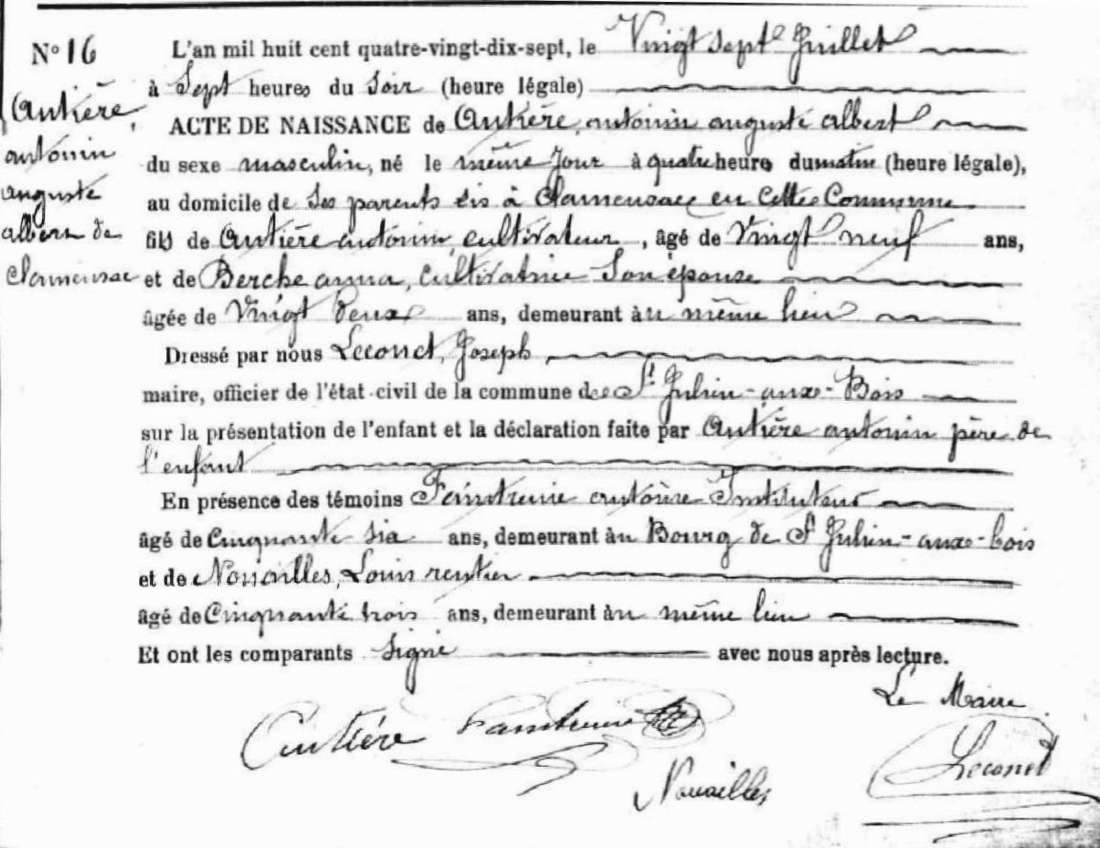 N° 16
L'an mil huit cent quatre-vingt-dix-sept, le Vingt Sept Juillet
à Sept heures du Soir (heure légale)
Antière,
antonin
auguste
albert de
Clamensac
ACTE DE NAISSANCE de Antière, antonin auguste albert
du sexe masculin, né le même Jour à quatre heures du matin (heure légale),
au domicile de Ses parents sis à Clamensac en Cette Commune
fils de Antière antonin, cultivateur, âgé de Vingt neuf ans,
et de Berche anna, cultivatrice Son épouse
âgée de Vingt deux ans, demeurant au même lieu
Dressé par nous Leconet, Joseph
maire, officier de l'état-civil de la commune de St Julien-aux-Bois
sur la présentation de l'enfant et la déclaration faite par Antière antonin père de
l'enfant
En présence des témoins antoine Instituteur
âgé de Cinquante Six ans, demeurant au Bourg de St Julien-aux-bois
et de Nouailles, Louis rentier
âgé de Cinquante trois ans, demeurant au même lieu
Et ont les comparants Signé avec nous après lecture.
Le Maire
Antière
Nouailles
Leconet